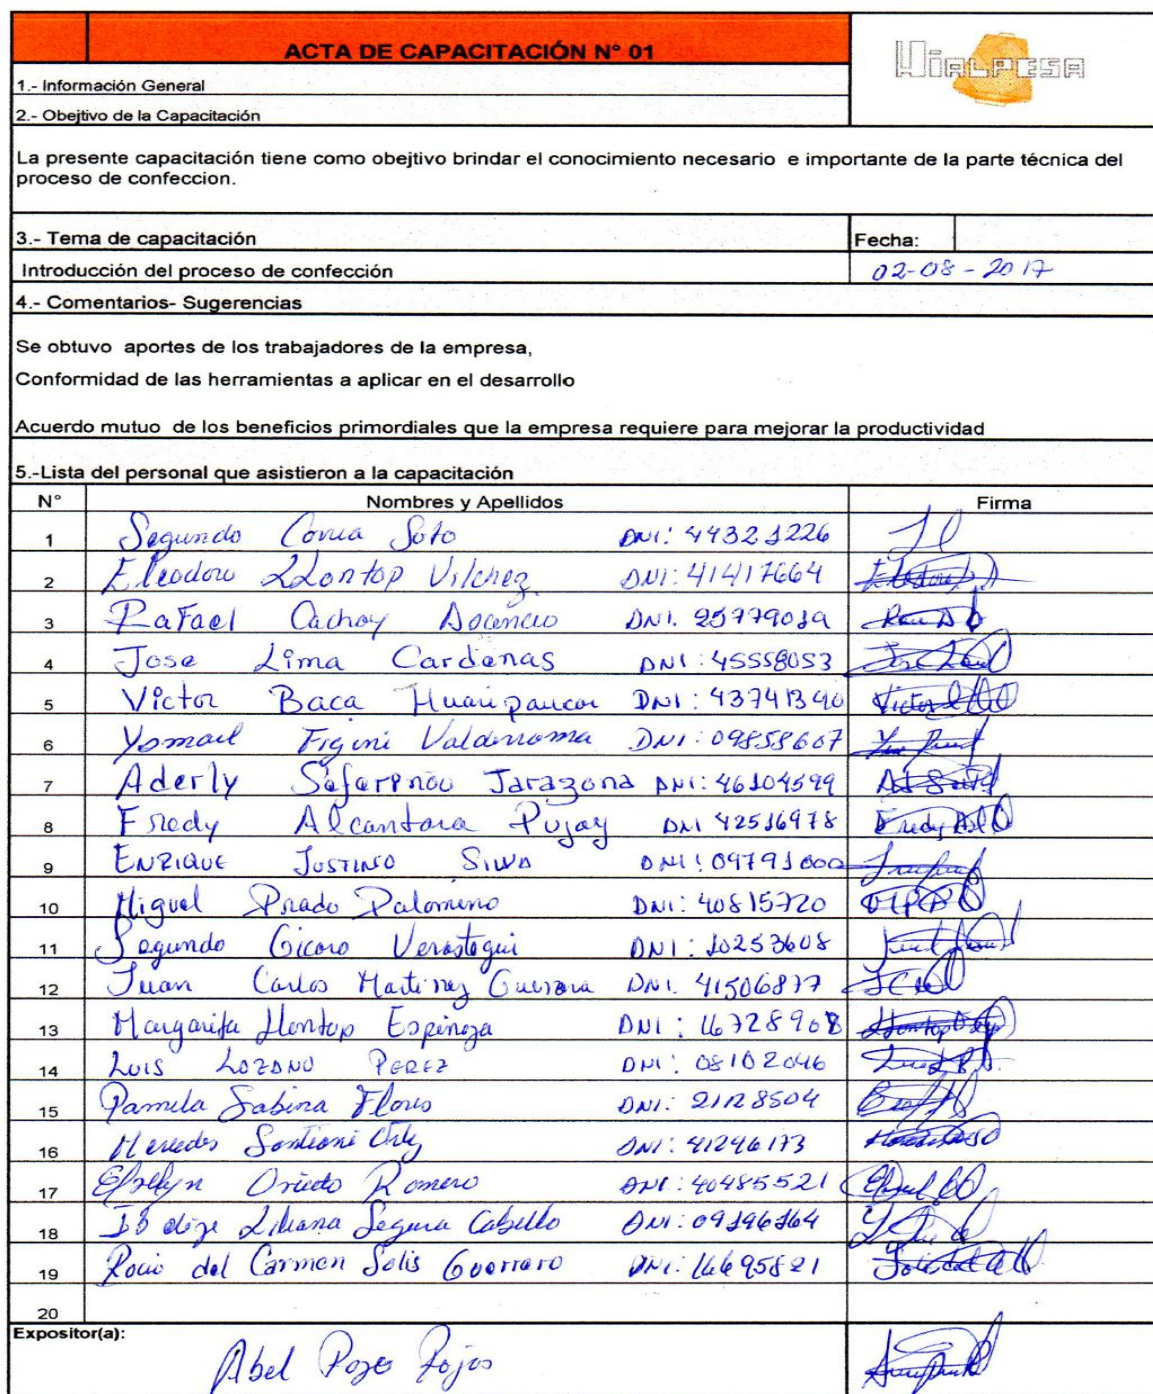 ACTA DE CAPACITACIÓN N° 01
Wialpesa
1.- Información General
2.- Obejtivo de la Capacitación
La presente capacitación tiene como obejtivo brindar el conocimiento necesario e importante de la parte técnica del
proceso de confeccion.
3.- Tema de capacitación Fecha:
Introducción del proceso de confección 02-08-2017
4.- Comentarios- Sugerencias
Se obtuvo aportes de los trabajadores de la empresa,
Conformidad de las herramientas a aplicar en el desarrollo
Acuerdo mutuo de los beneficios primordiales que la empresa requiere para mejorar la productividad
5.-Lista del personal que asistieron a la capacitación
N° Nombres y Apellidos Firma
1 Segundo Correa Soto DNI: 44321226
2 Eleodoro LLontop Vilchez DNI: 41417664
3 Rafael Cachay Ascencio DNI. 25779019
4 Jose Lima Cardenas DNI: 45558053
5 Victor Baca Huaripaucar DNI: 43741340
6 Valderrama DNI: 09858607
7 Aderly Jarazona DNI: 46104599
8 Fredy Alcantara Pujay DNI 42516978
9 ENRIQUE JUSTINO SILVA DNI: 09791000
10 Miguel Prado Palomino DNI: 40815720
11 Segundo Verastegui DNI: 10253608
12 Juan Carlos Martinez Guerrera DNI. 41506877
13 Margarita Llontop Espinoza DNI: 16728908
14 LUIS LOZANO PEREZ DNI: 08102046
15 Pamela Sabina Flores DNI: 21128504
16 Mercedes DNI: 41246173
17 Oviedo Romero DNI: 40485521
18 Liliana Segura Cabello DNI: 09196164
19 Rocio del Carmen Solis Guerrero DNI: 16695821
20
Expositor(a):
Abel Pozo Rojas